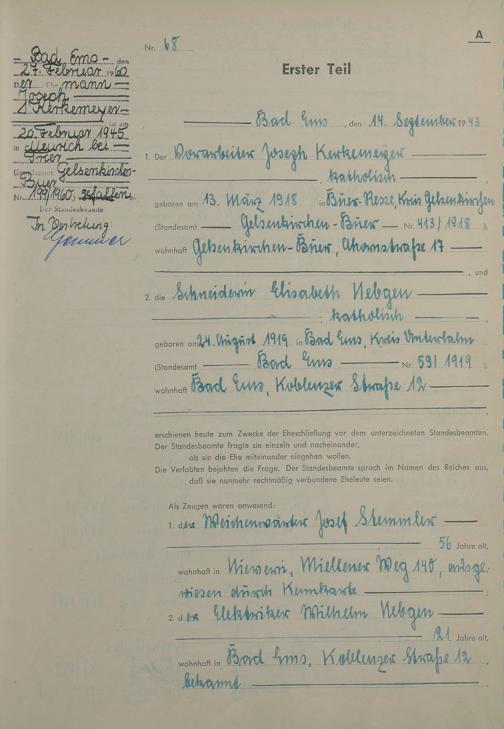 A
Nr. 68
Erster Teil
Bad Ems, den
27. Februar 1960
Der Ehemann
Joseph
Kerkemeyer
ist am
20. Februar 1945
in Meurich bei
Trier
Standesamt Gelsenkirchen-
Buer
Nr. 199/1960) gefallen.
Der Standesbeamte
In Vertretung
Bad Ems, den 14. September 1943
1. Der Vorarbeiter Joseph Kerkemeyer
katholisch
geboren am 13. März 1918 in Buer-Resse, Kreis Gelsenkirchen
(Standesamt Gelsenkirchen-Buer Nr. 413/1918),
wohnhaft Gelsenkirchen-Buer, Ahornstraße 17
, und
2. die Schneiderin Elisabeth Nebgen
katholisch
geboren am 24. August 1919 in Bad Ems, Kreis Unterlahn
(Standesamt Bad Ems Nr. 59/1919),
wohnhaft Bad Ems, Koblenzer Straße 12
erschienen heute zum Zwecke der Eheschließung vor dem unterzeichneten Standesbeamten.
Der Standesbeamte fragte sie einzeln und nacheinander,
ob sie die Ehe miteinander eingehen wollen.
Die Verlobten bejahten die Frage. Der Standesbeamte sprach im Namen des Reiches aus,
daß sie nunmehr rechtmäßig verbundene Eheleute seien.
Als Zeugen waren anwesend:
1. der Weichenwärter Josef Stemmler
56 Jahre alt,
wohnhaft in Niewern, Miellener Weg 140, ausge-
wiesen durch Kennkarte
2. der Elektriker Wilhelm Nebgen
21 Jahre alt,
wohnhaft in Bad Ems, Koblenzer Straße 12
bekannt